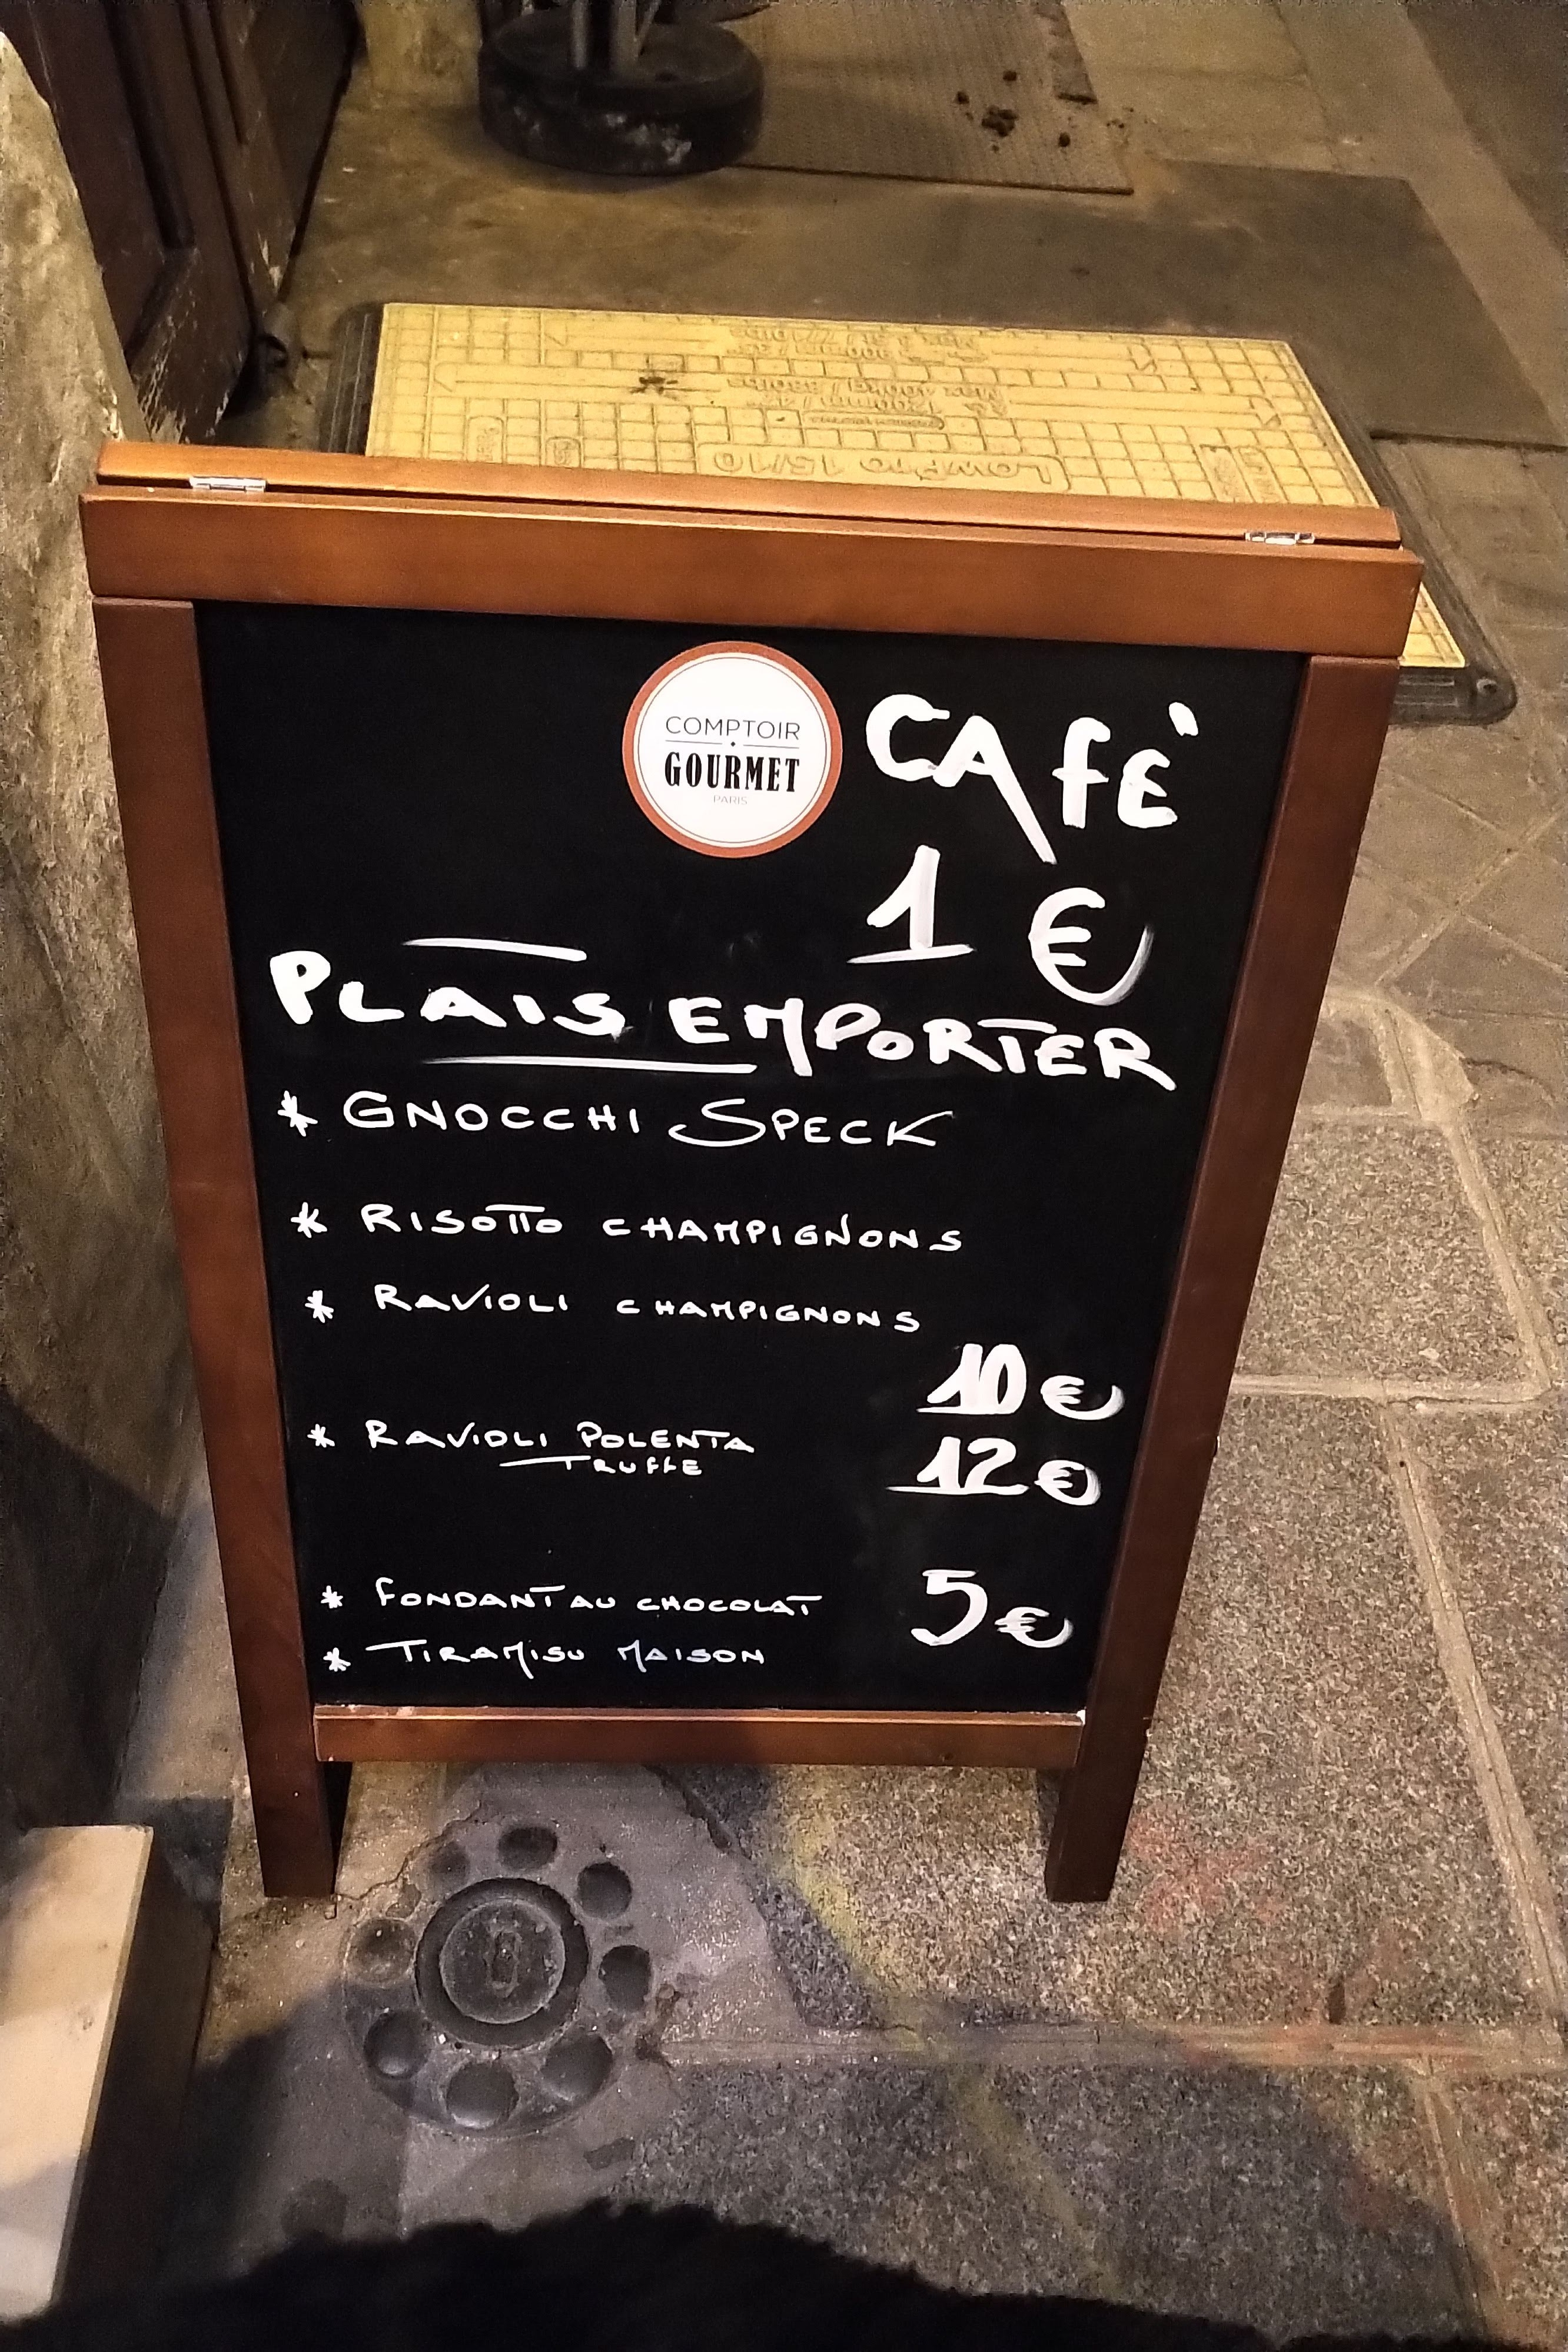 COMPTOIR
GOURMET
PARIS
CAFÈ
1 €
PLAIS EMPORTER
* GNOCCHI SPECK
* RISOTTO CHAMPIGNONS
* RAVIOLI CHAMPIGNONS
10 €
* RAVIOLI POLENTA
TRUFFE
12 €
* FONDANT AU CHOCOLAT
5 €
* TIRAMISU MAISON
LOWPRO 15/10